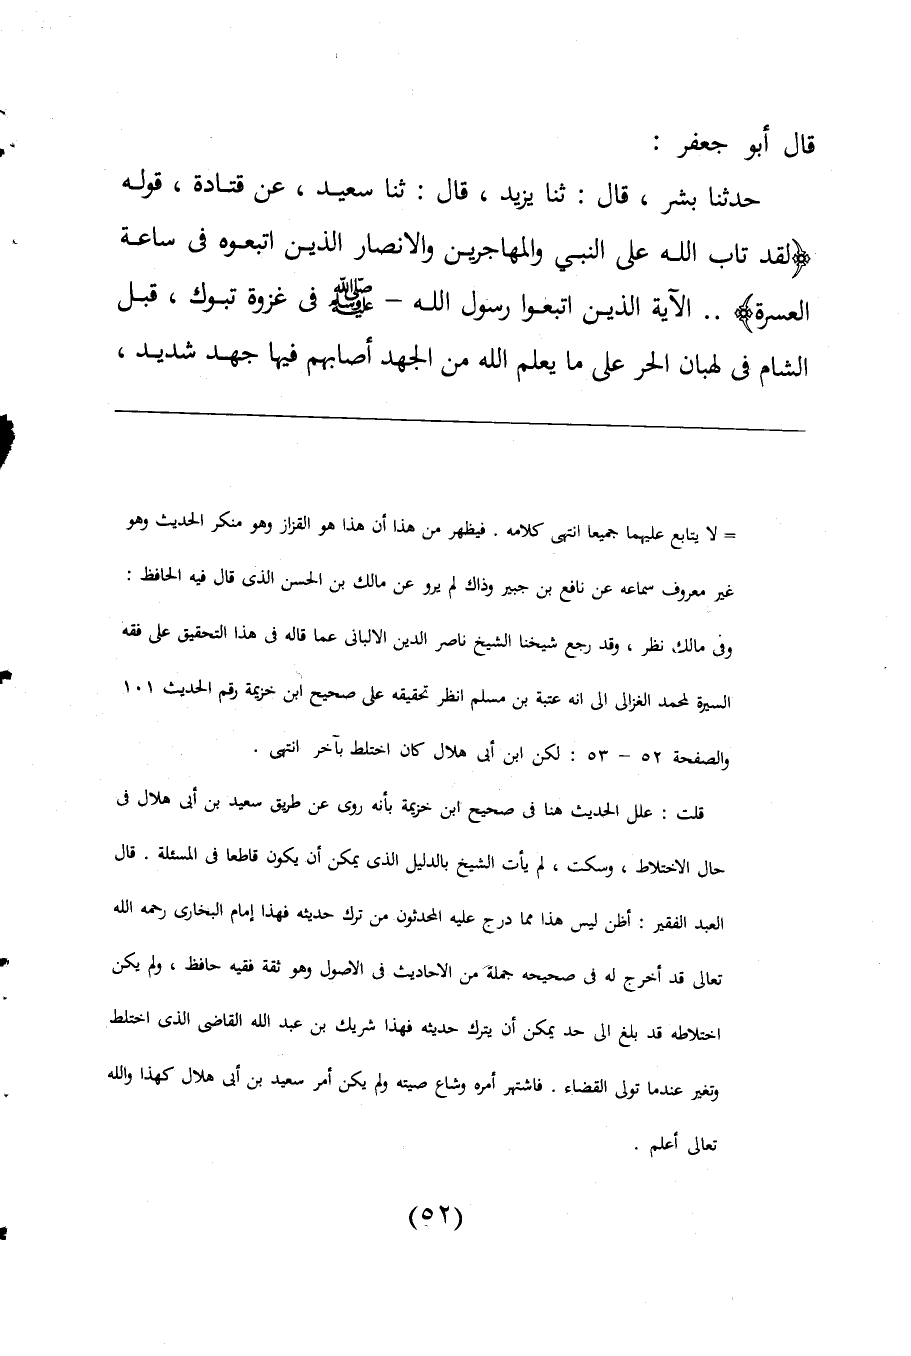 قال أبو جعفر :
حدثنا بشر ، قال : ثنا يزيد ، قال : ثنا سعيد ، عن قتادة ، قوله
﴿لقد تاب الله على النبي والمهاجرين والانصار الذين اتبعوه فى ساعة
العسرة﴾ .. الآية الذين اتبعوا رسول الله – ﷺ فى غزوة تبوك ، قبل
الشام فى لهبان الحر على ما يعلم الله من الجهد أصابهم فيها جهد شديد ،
= لا يتابع عليهما جميعا انتهى كلامه . فيظهر من هذا أن هذا هو القزاز وهو منكر الحديث وهو
غير معروف سماعه عن نافع بن جبير وذاك لم يرو عن مالك بن الحسن الذى قال فيه الحافظ :
وفى مالك نظر ، وقد رجع شيخنا الشيخ ناصر الدين الالبانى عما قاله فى هذا التحقيق على فقه
السيرة لمحمد الغزالى الى انه عتبة بن مسلم انظر تحقيقه على صحيح ابن خزيمة رقم الحديث ١٠١
والصفحة ٥٢ – ٥٣ : لكن ابن أبى هلال كان اختلط بآخر انتهى .
قلت : علل الحديث هنا فى صحيح ابن خزيمة بأنه روى عن طريق سعيد بن أبى هلال فى
حال الاختلاط ، وسكت ، لم يأت الشيخ بالدليل الذى يمكن أن يكون قاطعا فى المسئلة . قال
العبد الفقير : أظن ليس هذا مما درج عليه المحدثون من ترك حديثه فهذا إمام البخارى رحمه الله
تعالى قد أخرج له فى صحيحه جملة من الاحاديث فى الاصول وهو ثقة فقيه حافظ ، ولم يكن
اختلاطه قد بلغ الى حد يمكن أن يترك حديثه فهذا شريك بن عبد الله القاضى الذى اختلط
وتغير عندما تولى القضاء . فاشتهر أمره وشاع صيته ولم يكن أمر سعيد بن أبى هلال كهذا والله
تعالى أعلم .
(٥٢)